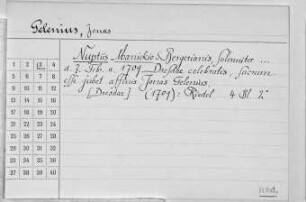 Gelenius, Jonas
Nuptiis Marnickio Bergerianis, solemniter ...
a. 7. Feb. a. 1701 Dresdae celebratis, sacrum
esse jubet affinis Jonas Gelenius.
[Dresden] (1701): Riedel. 4 Bl. 2°
1 2 3 4
5 6 7 8
9 10 11 12
13 14 15 16
17 18 19 20
21 22 23 24
25 26 27 28
29 30 31 32
33 34 35 36
37 38 39 40